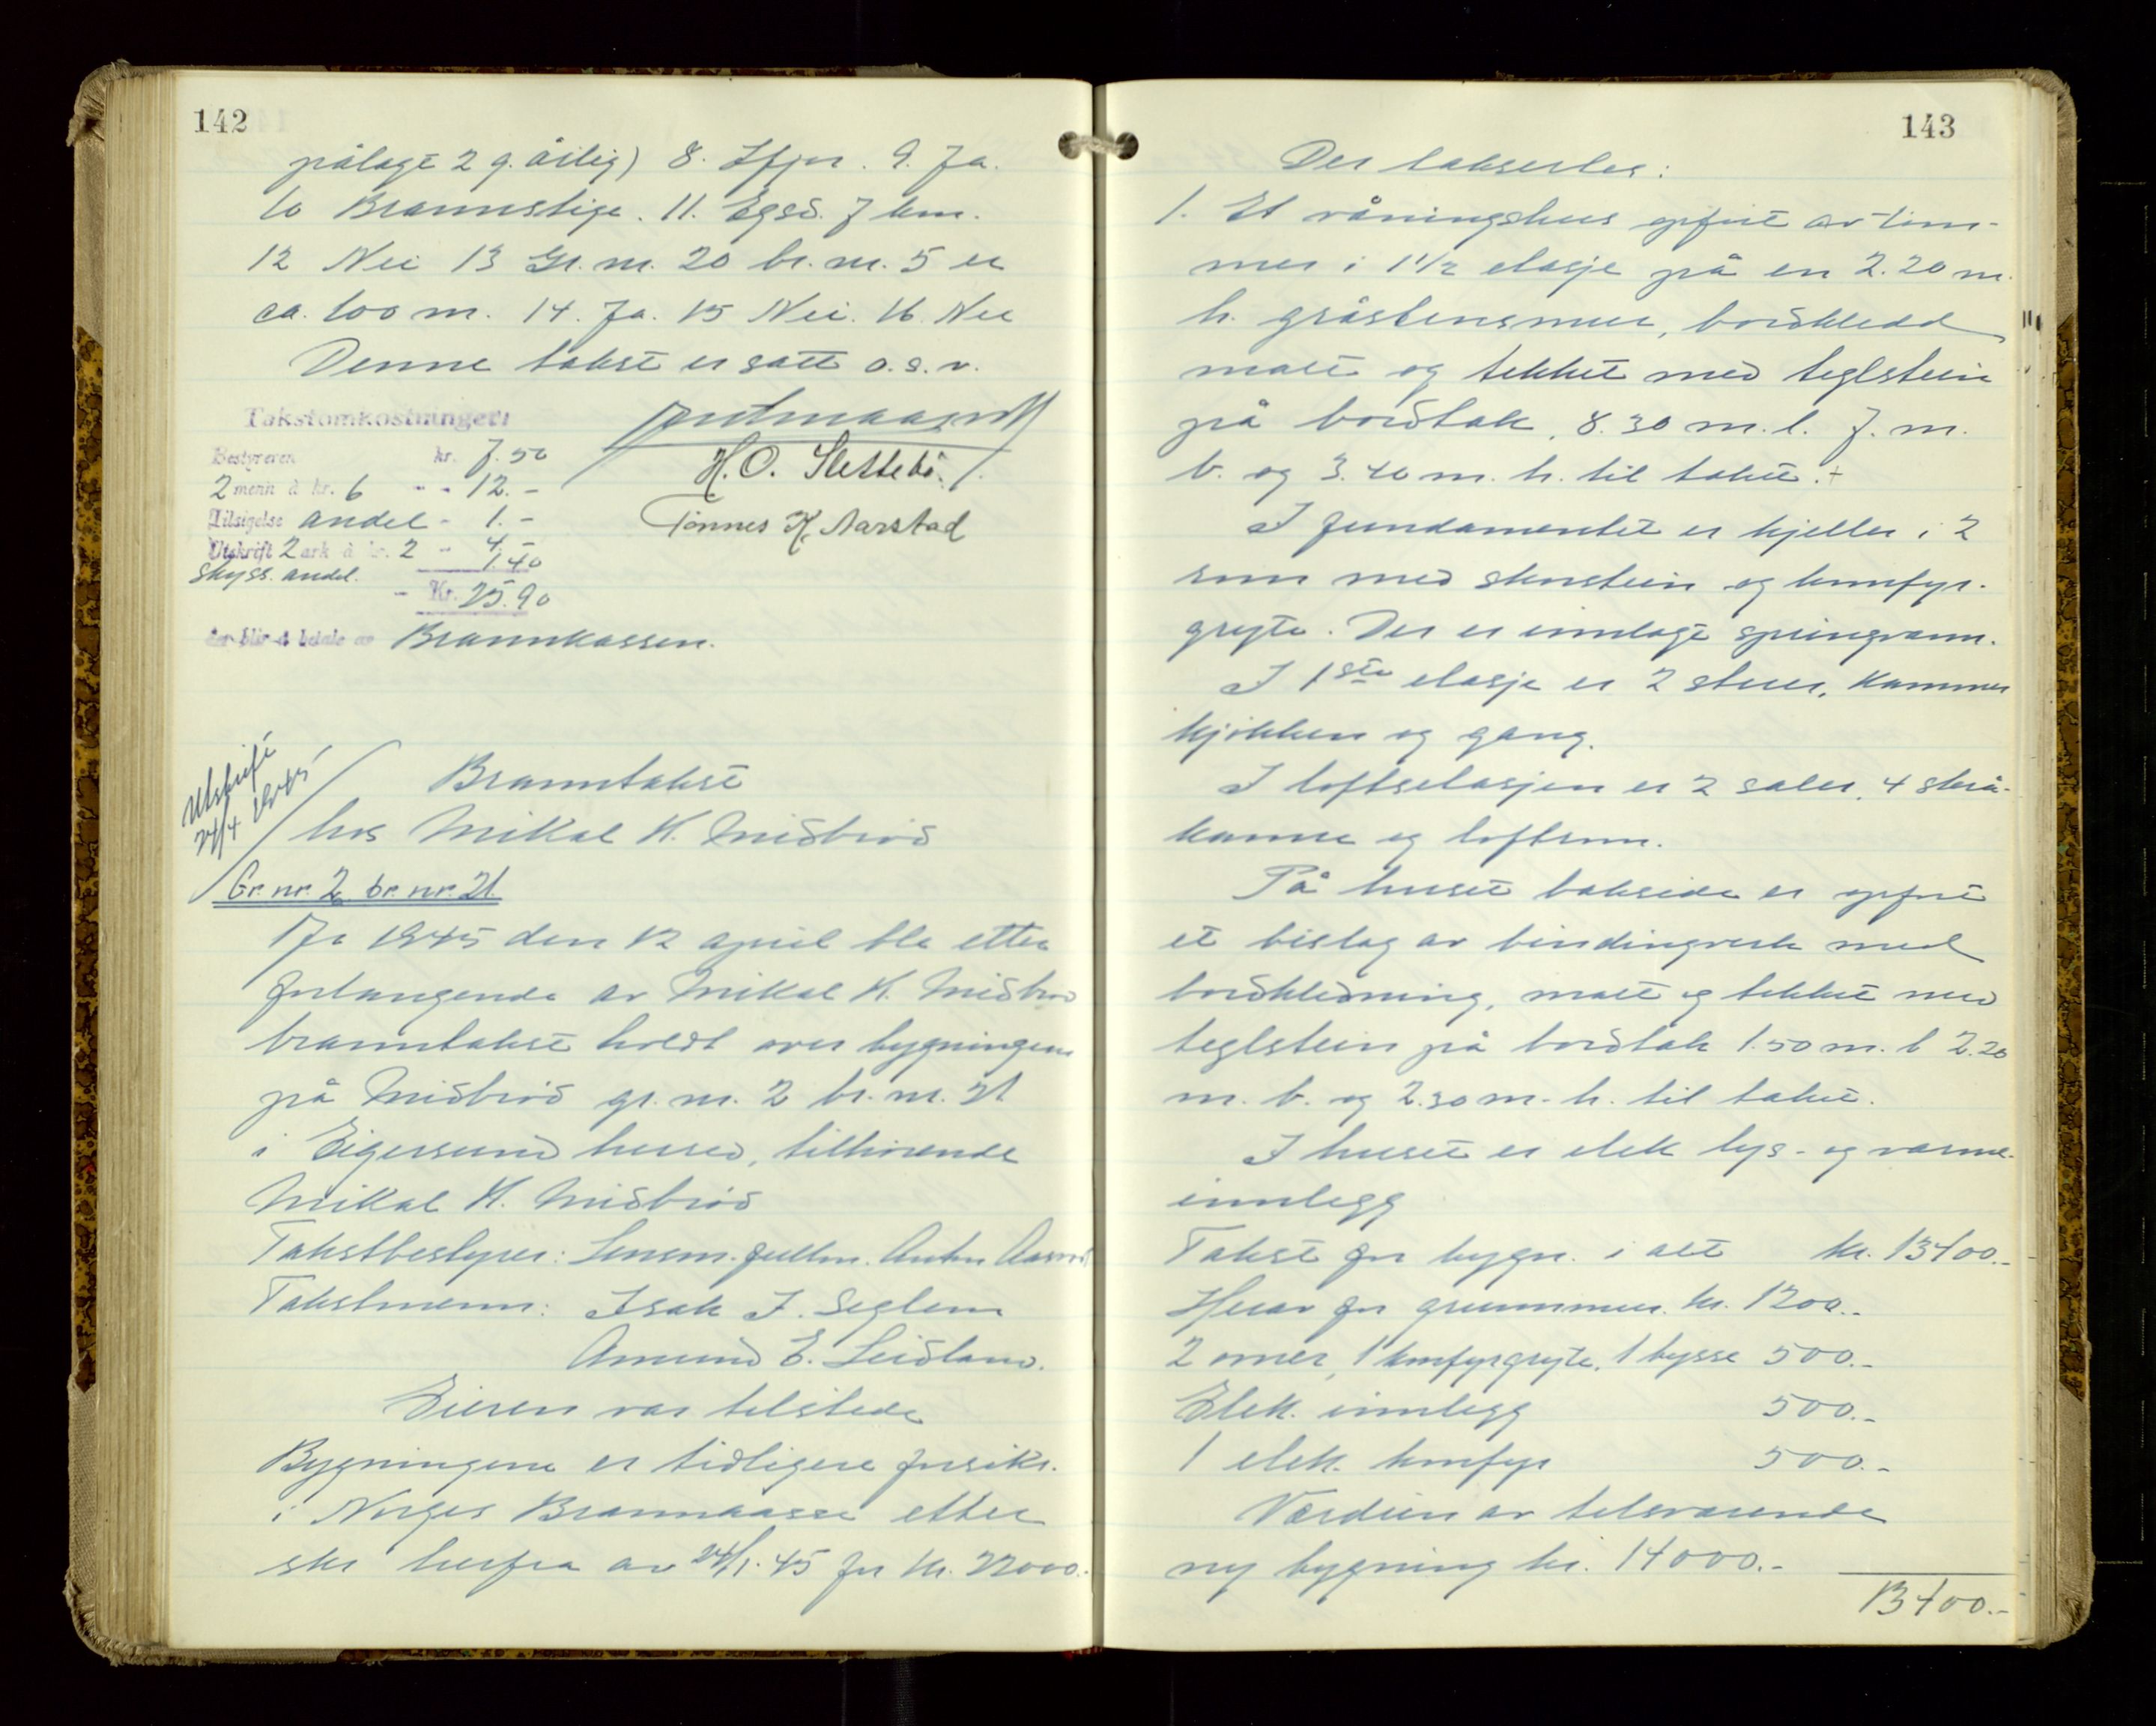 142
pålagt 2 g. årlig) 8. Ifjor. 9. Ja.
10 Brannstige. 11. Egsd. 7 km.
12 Nei 13 Gr. nr. 20 br. nr. 5 er
ca. 100 m. 14. Ja. 15 Nei. 16 Nei
Denne takst er satt o.s.v.
Takstomkostninger:
Bestyreren kr. 7.50
2 menn à kr. 6 - - 12.-
Tilsigelse andel - 1.-
Utskrift 2 ark à kr. 2 - 4.-
Skyss. andel. 1.40
- Kr. 25.90
der blir å betale av Brannkassen.
H. O. Slettebø.
Tønnes K. Aarstad
Utskrift
24/4 1945
Branntakst
hos Mikal K. Midbrød
Gr. nr. 2 br. nr. 21.
År 1945 den 12 april ble etter
forlangende av Mikal K. Midbrød
branntakst holdt over bygningene
på Midbrød gr. nr. 2 br. nr. 21
i Eigersund herred, tilhørende
Mikal K. Midbrød
Takstbestyrer: Lensm. fullm. Anton Aasrød
Takstmenn: Isak I. Seglem
Amund E. Leidland.
Eieren var tilstede
Bygningene er tidligere forsikr.
i Norges Brannkasse etter
skr herfra av 24/1.45 for kr. 22000.
143
Der takseres:
1. Et våningshus opført av tøm-
mer i 1 1/2 etasje på en 2.20 m.
h. gråstensmur, bordkledd
malt og tekket med teglstein
på bordtak, 8.30 m. l. 7. m.
b. og 3.40 m. h. til taket. +
I fundamentet er kjeller i 2
rum med skorstein og komfyr-
gryte. Der er innlagt springvann.
I 1ste etasje er 2 stuer, kammer
kjøkken og gang.
I loftsetasjen er 2 saler, 4 skrå-
kamre og loftrum.
På huset bakside er opført
et bislag av bindingverk med
bordkledning, malt og tekket med
teglstein på bordtak 1.50 m. l 2.20
m. b. og 2.30 m. h. til taket.
I huset er elek lys- og varme-
innlegg
Takst for bygn. i alt kr. 13400.-
Herav for grunnmur. kr. 1200.-
2 ovner, 1 komfyrgryte, 1 bysse 500.-
Elek. innlegg 500.-
1 elek. komfyr 500.-
Verdien av tilsvarende
ny bygning kr. 14000.-
13400.-